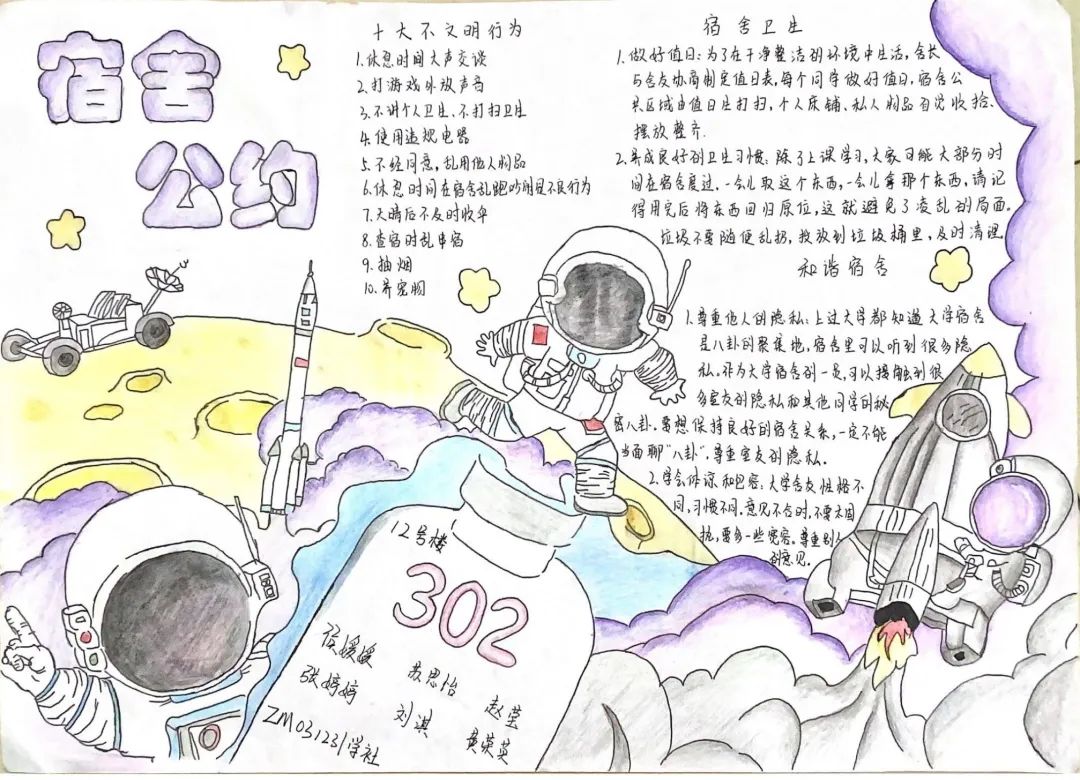 宿舍
公约
十大不文明行为
1.休息时间大声交谈
2.打游戏外放声音
3.不讲个人卫生、不打扫卫生
4.使用违规电器
5.不经同意,乱用他人物品
6.休息时间在宿舍乱跑吵闹是不良行为
7.天晴后不及时收伞
8.查宿时乱串宿
9.抽烟
10.养宠物
宿舍卫生
1.做好值日:为了在干净整洁的环境中生活,舍长
与舍友协商制定值日表,每个同学做好值日,宿舍公
共区域由值日生打扫,个人床铺、私人物品勿忘收拾、
摆放整齐.
2.养成良好的卫生习惯:除了上课学习,大家可能大部分时
间在宿舍度过,一会儿取这个东西,一会儿拿那个东西,请记
得用完后将东西回归原位,这就避免了凌乱的局面。
垃圾不要随便乱扔,投放到垃圾桶里,及时清理.
和谐宿舍
1.尊重他人的隐私:上过大学都知道大学宿舍
是八卦的聚集地,宿舍里可以听到很多隐
私.作为大学宿舍的一员,可以接触到很
多室友的隐私和其他同学的秘
密八卦.要想保持良好的宿舍关系,一定不能
当面聊"八卦".尊重室友的隐私.
2.学会体谅和包容:大学舍友性格不
同,习惯不同.意见不合时,不要太固
执,要多一些宽容.尊重别人
的意见.
12号楼
302
媛媛
苏思怡
赵莹
张婷婷
刘淇
黄荣英
ZM031231学社